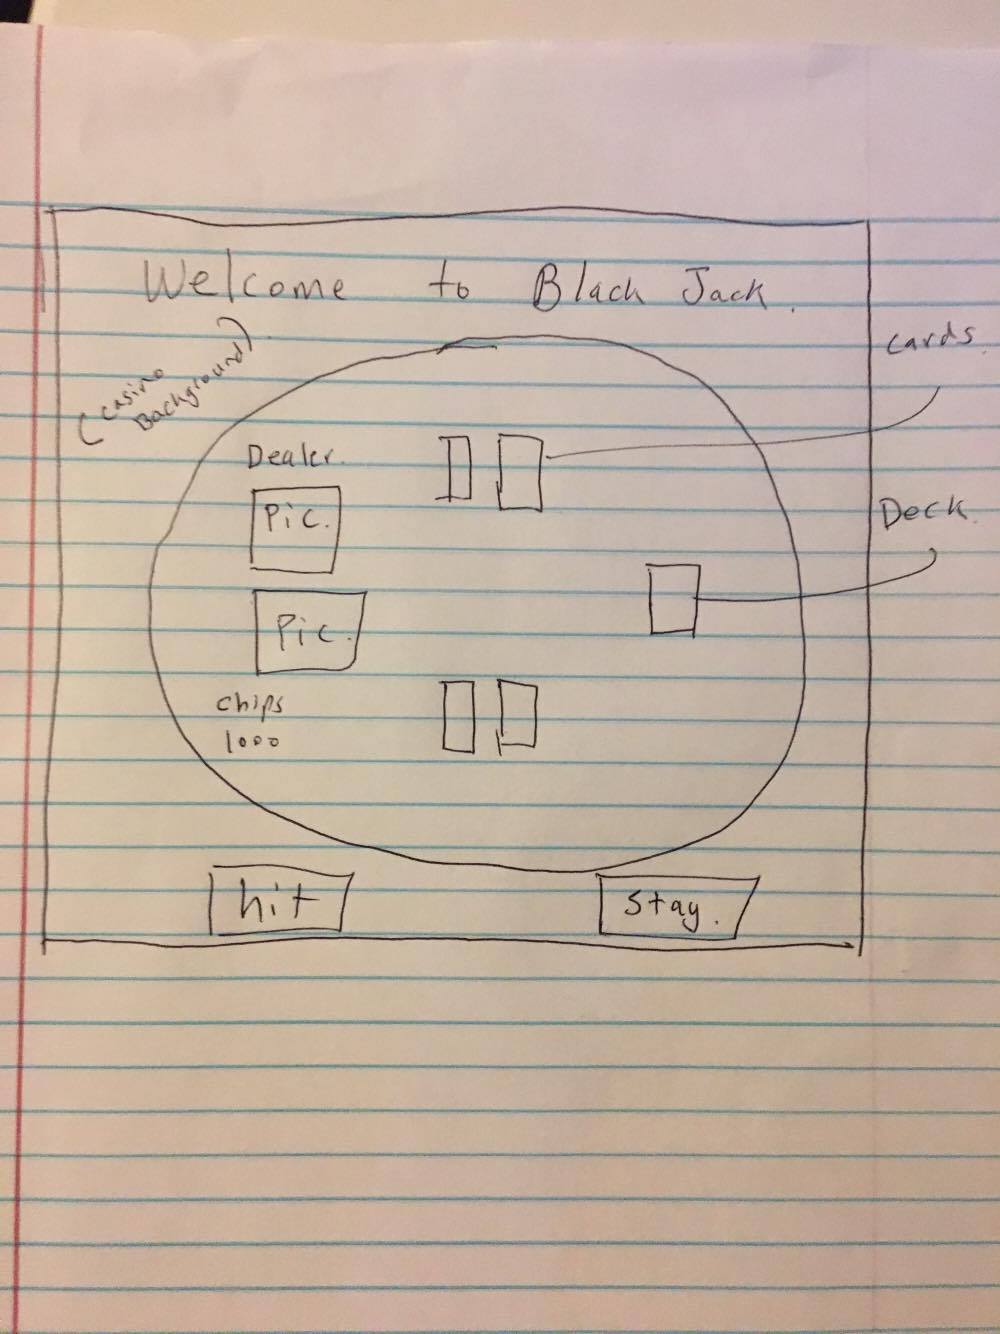 Welcome to Black Jack.
(Casino
Background)
cards.
Dealer.
Pic.
Deck.
Pic.
chips
1000
hit
stay.